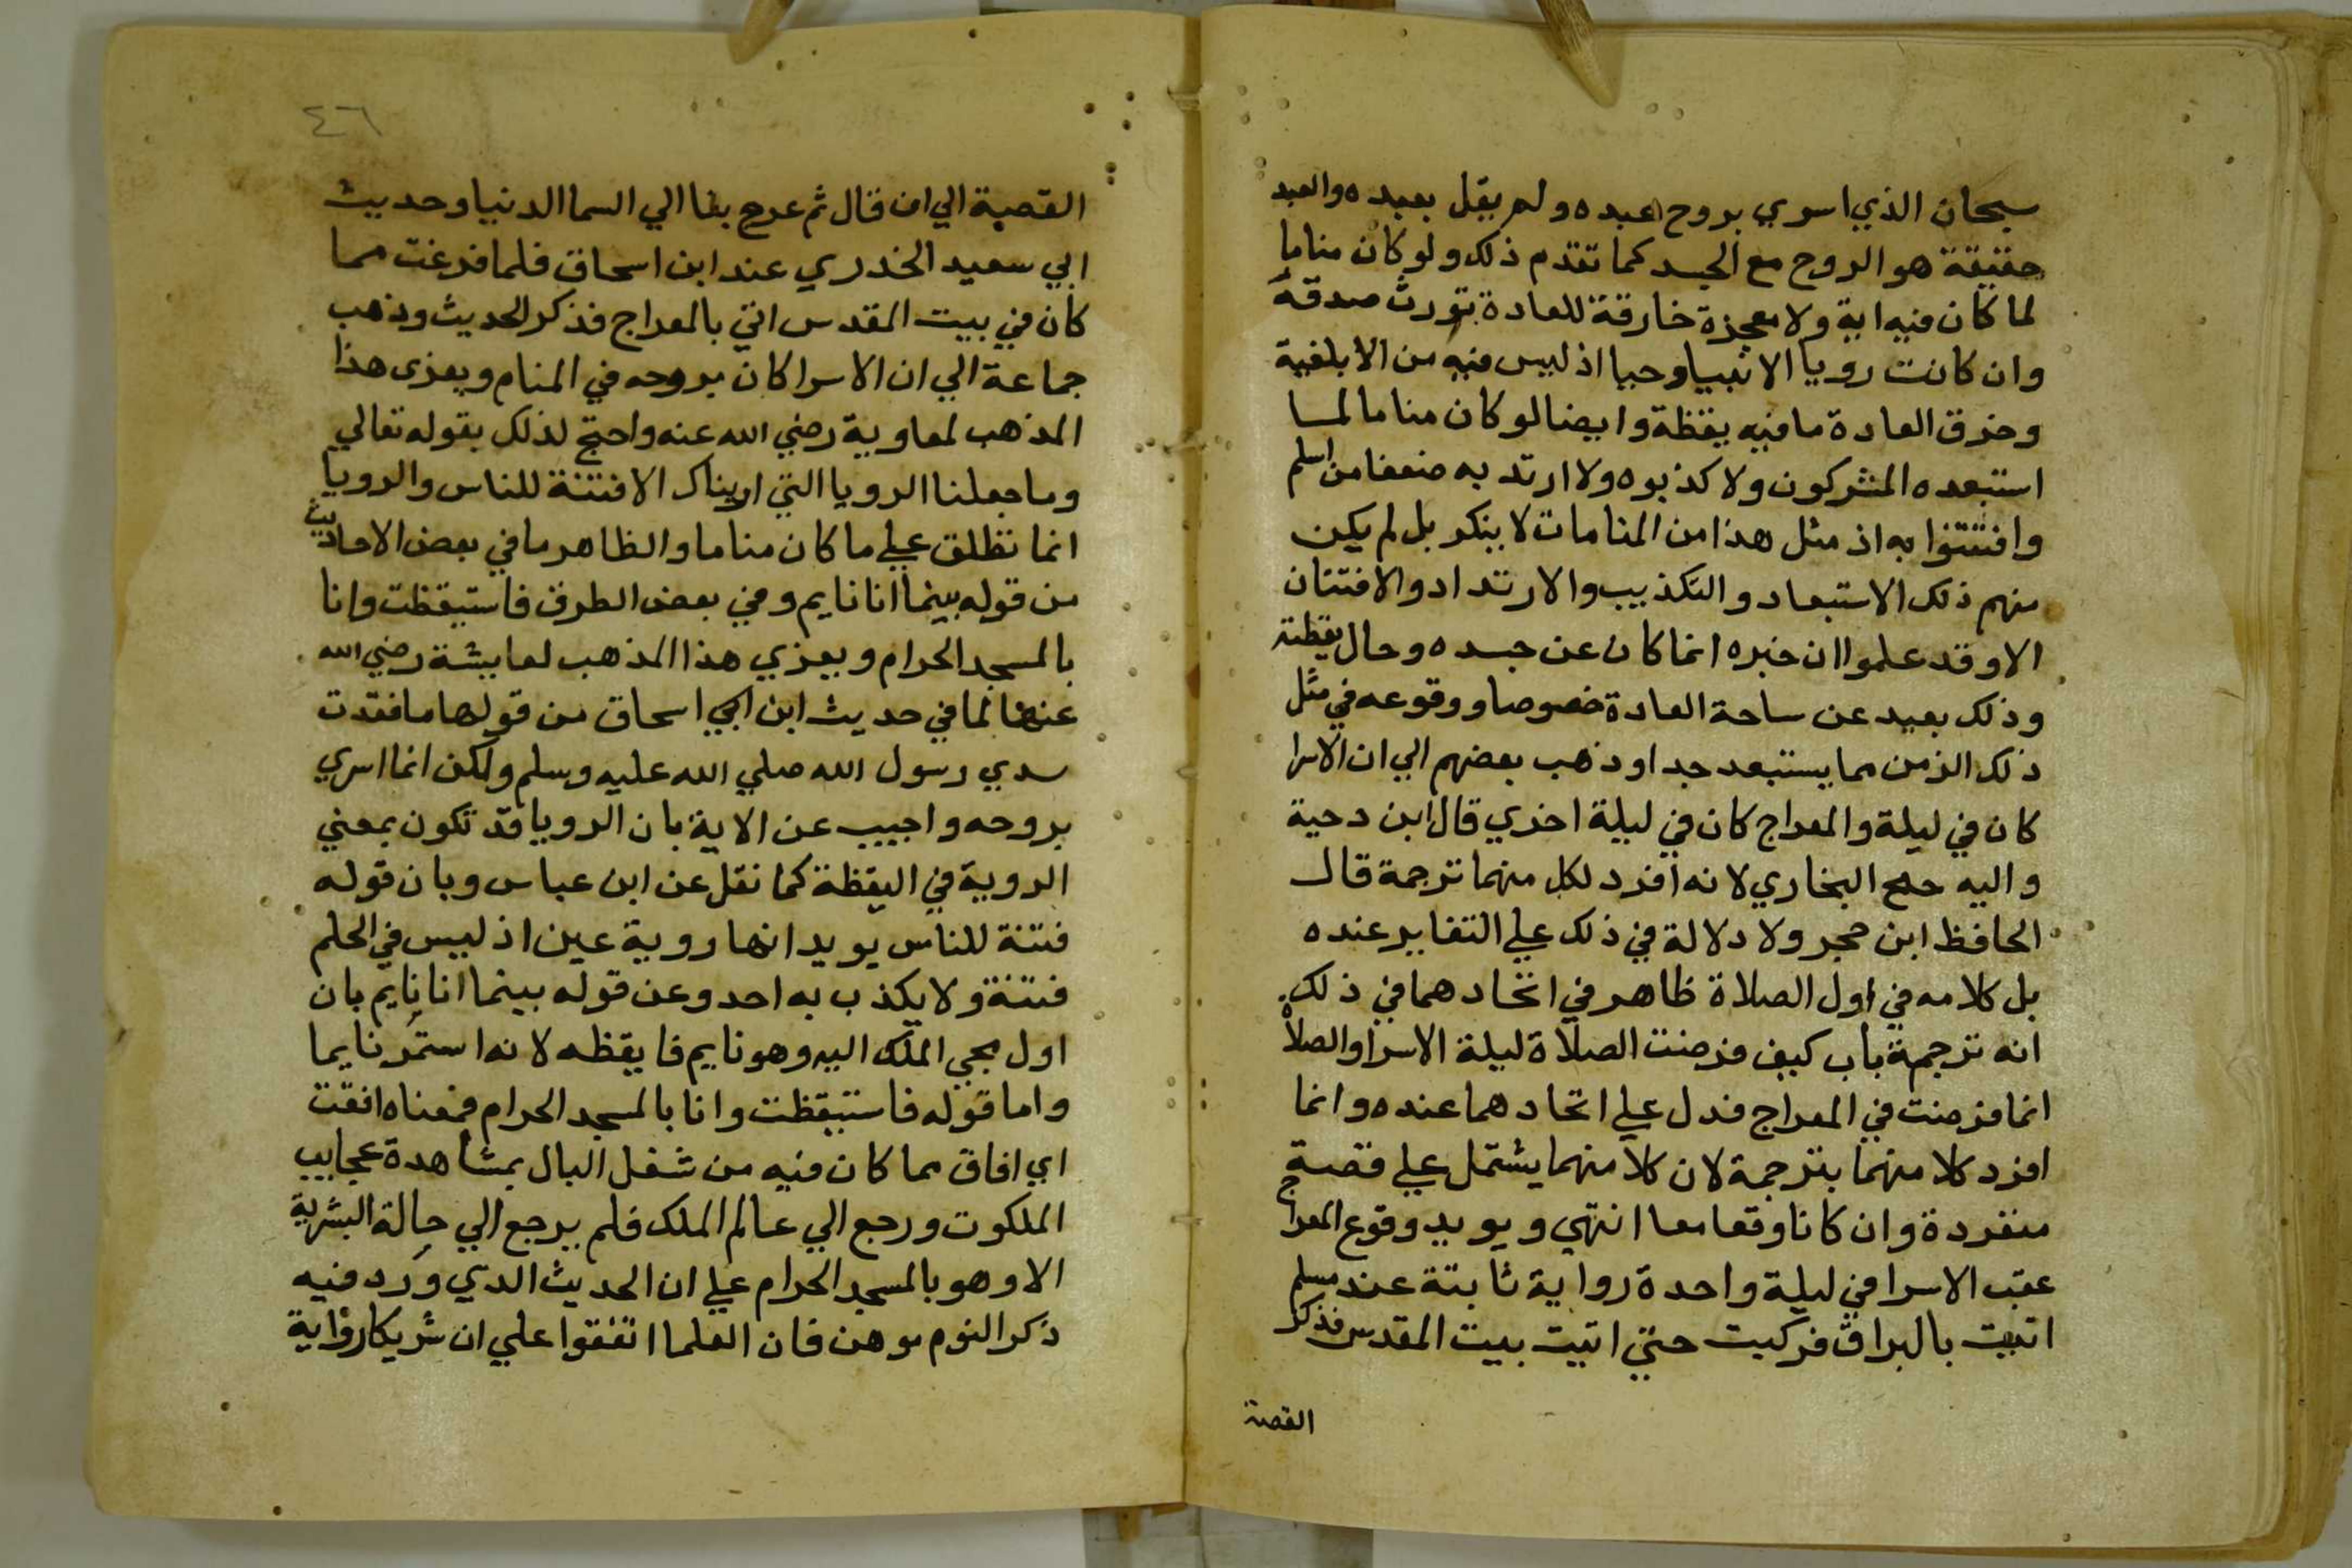 سبحان الذي اسري بروح عبده ولم يقل بعبده والعبد
حقيقة هو الروح مع الجسد كما تقدم ذلك ولو كان مناما
لما كان فيه اية ولا معجزة خارقة للعادة تورث صدقه
وان كانت رويا الانبيا وحيا اذ ليس فيه من الابلغية
وخرق العادة ما فيه يقظة وايضا لو كان مناما لما
استبعده المشركون ولا كذبوه ولا ارتد به ضعفا من اسلم
وافتتنوا به اذ مثل هذا من المنامات لا ينكر بل لم يكن
منهم ذلك الاستبعاد والتكذيب والارتداد والافتتان
الا وقد علموا ان خبره انما كان عن جسده وحال يقظته
وذلك بعيد عن ساحة العادة خصوصا ووقوعه في مثل
ذلك الزمن مما يستبعد جدا وذهب بعضهم الي ان الاسرا
كان في ليلة والمعراج كان في ليلة اخري قال ابن دحية
واليه جنح البخاري لانه افرد لكل منهما ترجمة قال
الحافظ ابن حجر ولا دلالة في ذلك علي التغاير عنده
بل كلامه في اول الصلاة ظاهر في اتحادهما في ذلك
انه ترجمة باب كيف فرضت الصلاة ليلة الاسرا والصلاة
انما فرضت في المعراج فدل علي اتحادهما عنده وانما
افرد كلا منهما بترجمة لان كلا منهما يشتمل علي قصة
منفردة وان كانا وقعا معا انتهي ويويد وقوع المعراج
عقب الاسرا في ليلة واحدة رواية ثابتة عند مسلم
اتيت بالبراق فركبت حتي اتيت بيت المقدس فذكر
القصة
٤٦
القصة الي ان قال ثم عرج بنا الي السما الدنيا وحديث
ابي سعيد الخدري عند ابن اسحاق فلما فرغت مما
كان في بيت المقدس اتي بالمعراج فذكر الحديث وذهب
جماعة الي ان الاسرا كان بروحه في المنام ويعزى هذا
المذهب لمعاوية رضي الله عنه واحتج لذلك بقوله تعالي
وما جعلنا الرويا التي اريناك الا فتنة للناس والرويا
انما تطلق علي ما كان مناما والظاهر ما في بعض الاحاديث
من قوله بينما انا نايم وفي بعض الطرق فاستيقظت وانا
بالمسجد الحرام ويعزي هذا المذهب لعايشة رضي الله
عنها لما في حديث ابن ابي اسحاق من قولها ما فقدت
سدي رسول الله صلي الله عليه وسلم ولكن انما اسري
بروحه واجيب عن الاية بان الرويا قد تكون بمعني
الروية في اليقظة كما نقل عن ابن عباس وبان قوله
فتنة للناس يويد انها روية عين اذ ليس في الحلم
فتنة ولا يكذب به احد وعن قوله بينما انا نايم بان
اول مجي الملك اليه وهو نايم فايقظه لا انه استمر نايما
واما قوله فاستيقظت وانا بالمسجد الحرام فمعناه افقت
اي افاق مما كان فيه من شغل البال بمشاهدة عجايب
الملكوت ورجع الي عالم الملك فلم يرجع الي حالة البشرية
الا وهو بالمسجد الحرام علي ان الحديث الذي ورد فيه
ذكر النوم موهن فان العلما اتفقوا علي ان شريكا رواية